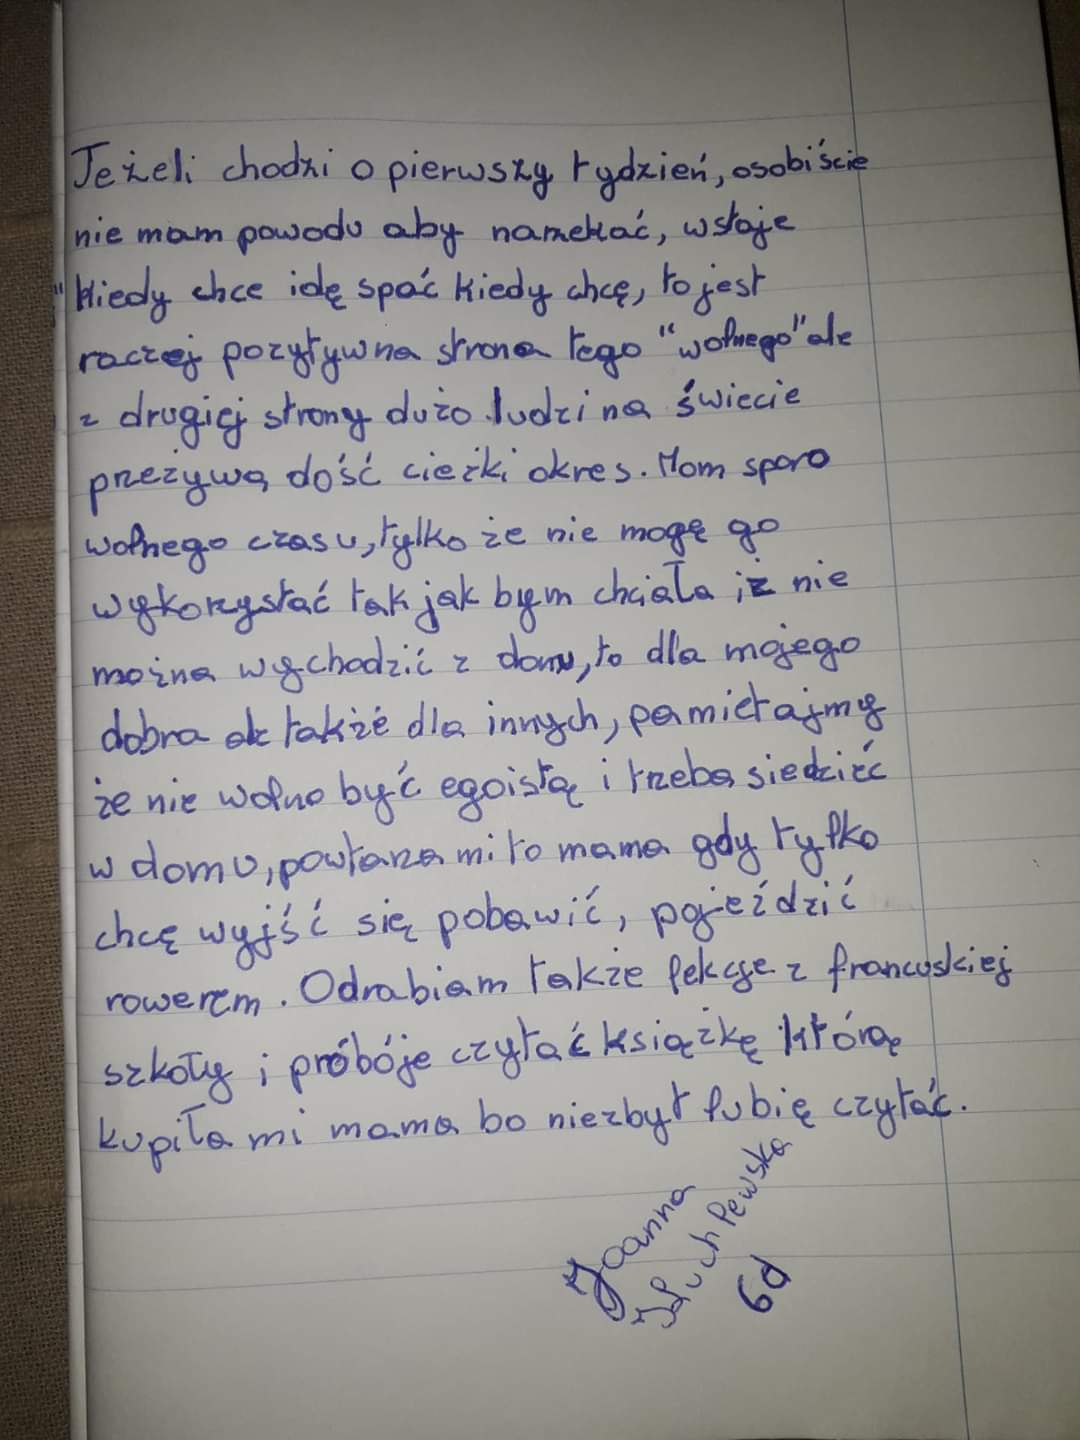 Jeżeli chodzi o pierwszy tydzień, osobiście
nie mam powodu aby narzekać, wstaje
"kiedy chce idę spać kiedy chcę, to jest
raczej pozytywna strona tego "wolnego" ale
z drugiej strony dużo ludzi na świecie
przeżywa dość cieżki okres. Mam sporo
wolnego czasu, tylko że nie mogę go
wykorzystać tak jak bym chciała iż nie
można wychodzić z domu, to dla mojego
dobra ale także dla innych, pamietajmy
że nie wolno być egoistą i trzeba siedzieć
w domu, powtarza mi to mama gdy tylko
chcę wyjść się pobawić, pojeździć
rowerem. Odrabiam także lekcje z francuskiej
szkoły i próbóje czytać książkę którą
kupiła mi mama bo niezbyt lubię czytać.
Joanna
6d